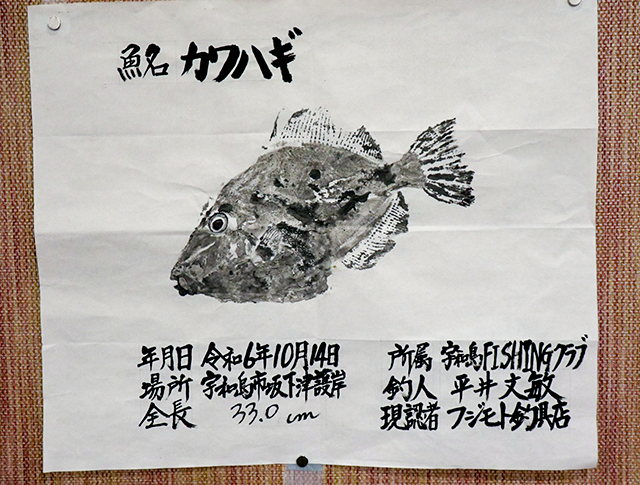 魚名 カワハギ
年月日 令和6年10月14日
場所 宇和島市坂下津護岸
全長 33.0 cm
所属 宇和島FISHINGクラブ
釣人 平井丈敏
現認者 フジモト釣具店